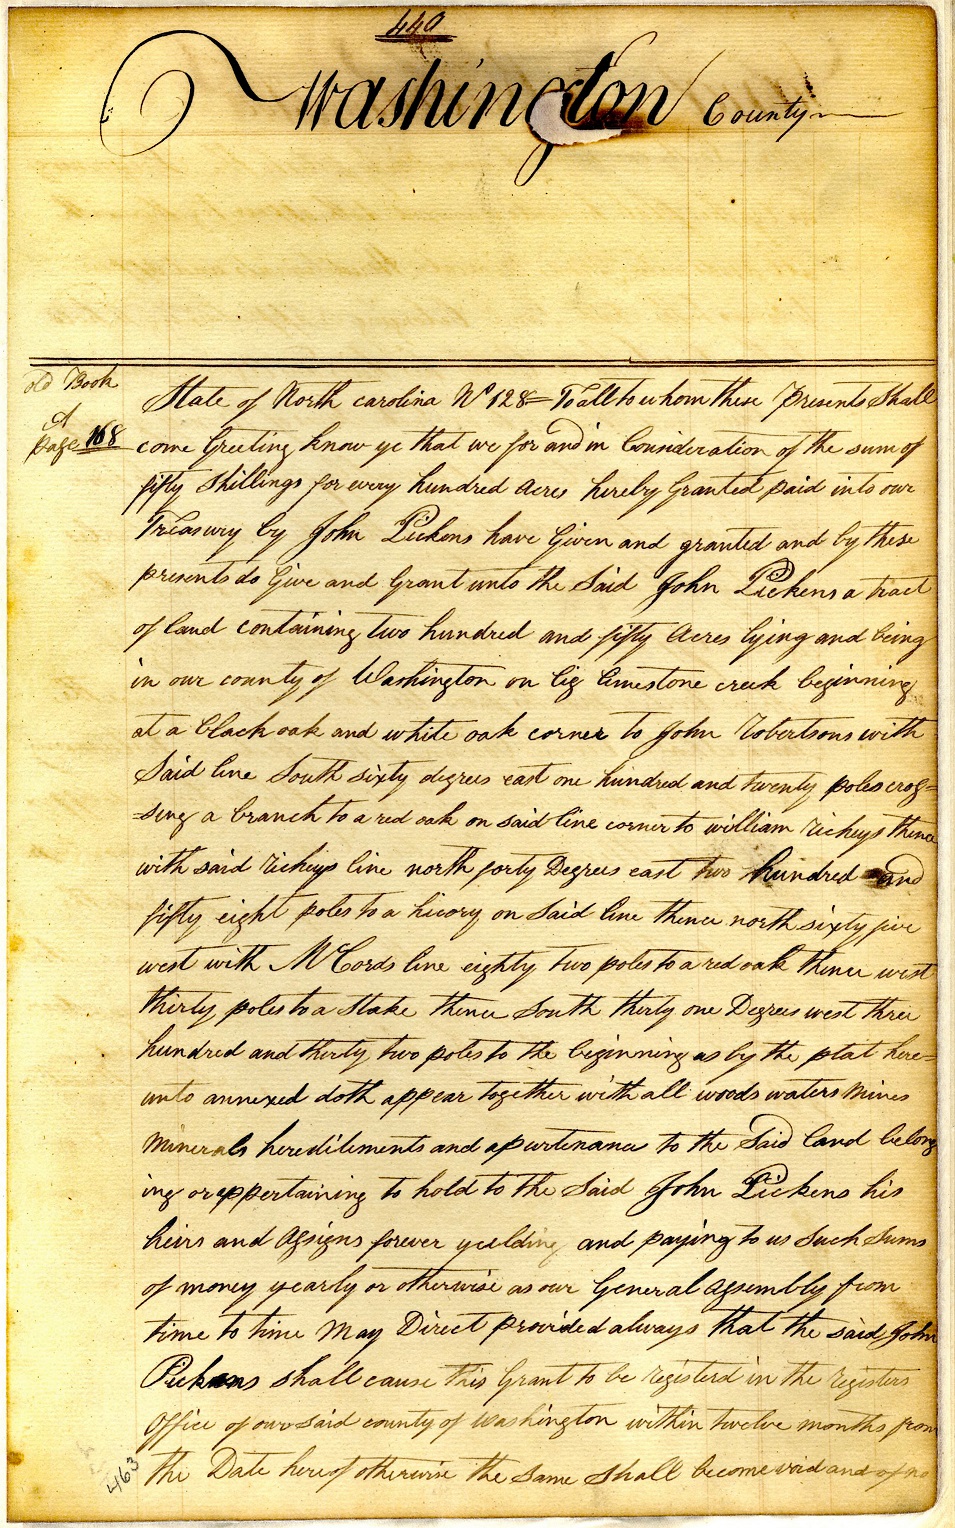 440
Washington County
old Book
A
page 168
State of North carolina No 128 = To all to whom these Presents Shall
come Greeting know ye that we for and in Consideration of the sum of
fifty Shillings for every hundred Acres hereby Granted paid into our
Treasury by John Pickens have Given and granted and by these
presents do Give and Grant unto the Said John Pickens a tract
of land containing two hundred and fifty Acres lying and being
in our county of Washington on big limestone creek beginning
at a black oak and white oak corner to John Robertsons with
Said line South sixty degrees east one hundred and twenty poles cros=
=sing a branch to a red oak on said line corner to william Richeys thence
with said Richeys line north forty Degrees east two hundred and
fifty eight poles to a hicory on Said line thence north sixty five
west with McCords line eighty two poles to a red oak thence west
thirty poles to a Stake thence South thirty one Degrees west three
hundred and thirty two poles to the beginning as by the plat here=
unto annexed doth appear together with all woods waters Mines
Minerals hereditements and apurtenances to the Said land belong
ing or appertaining to hold to the Said John Pickens his
heirs and Assigns forever yielding and paying to us Such Sums
of money yearly or otherwise as our General Assembly from
time to time May Direct provided always that the said John
Pickens shall cause this Grant to be registerd in the registers
Office of our said county of Washington within twelve months from
the Date hereof otherwise the Same Shall become void and of no
463